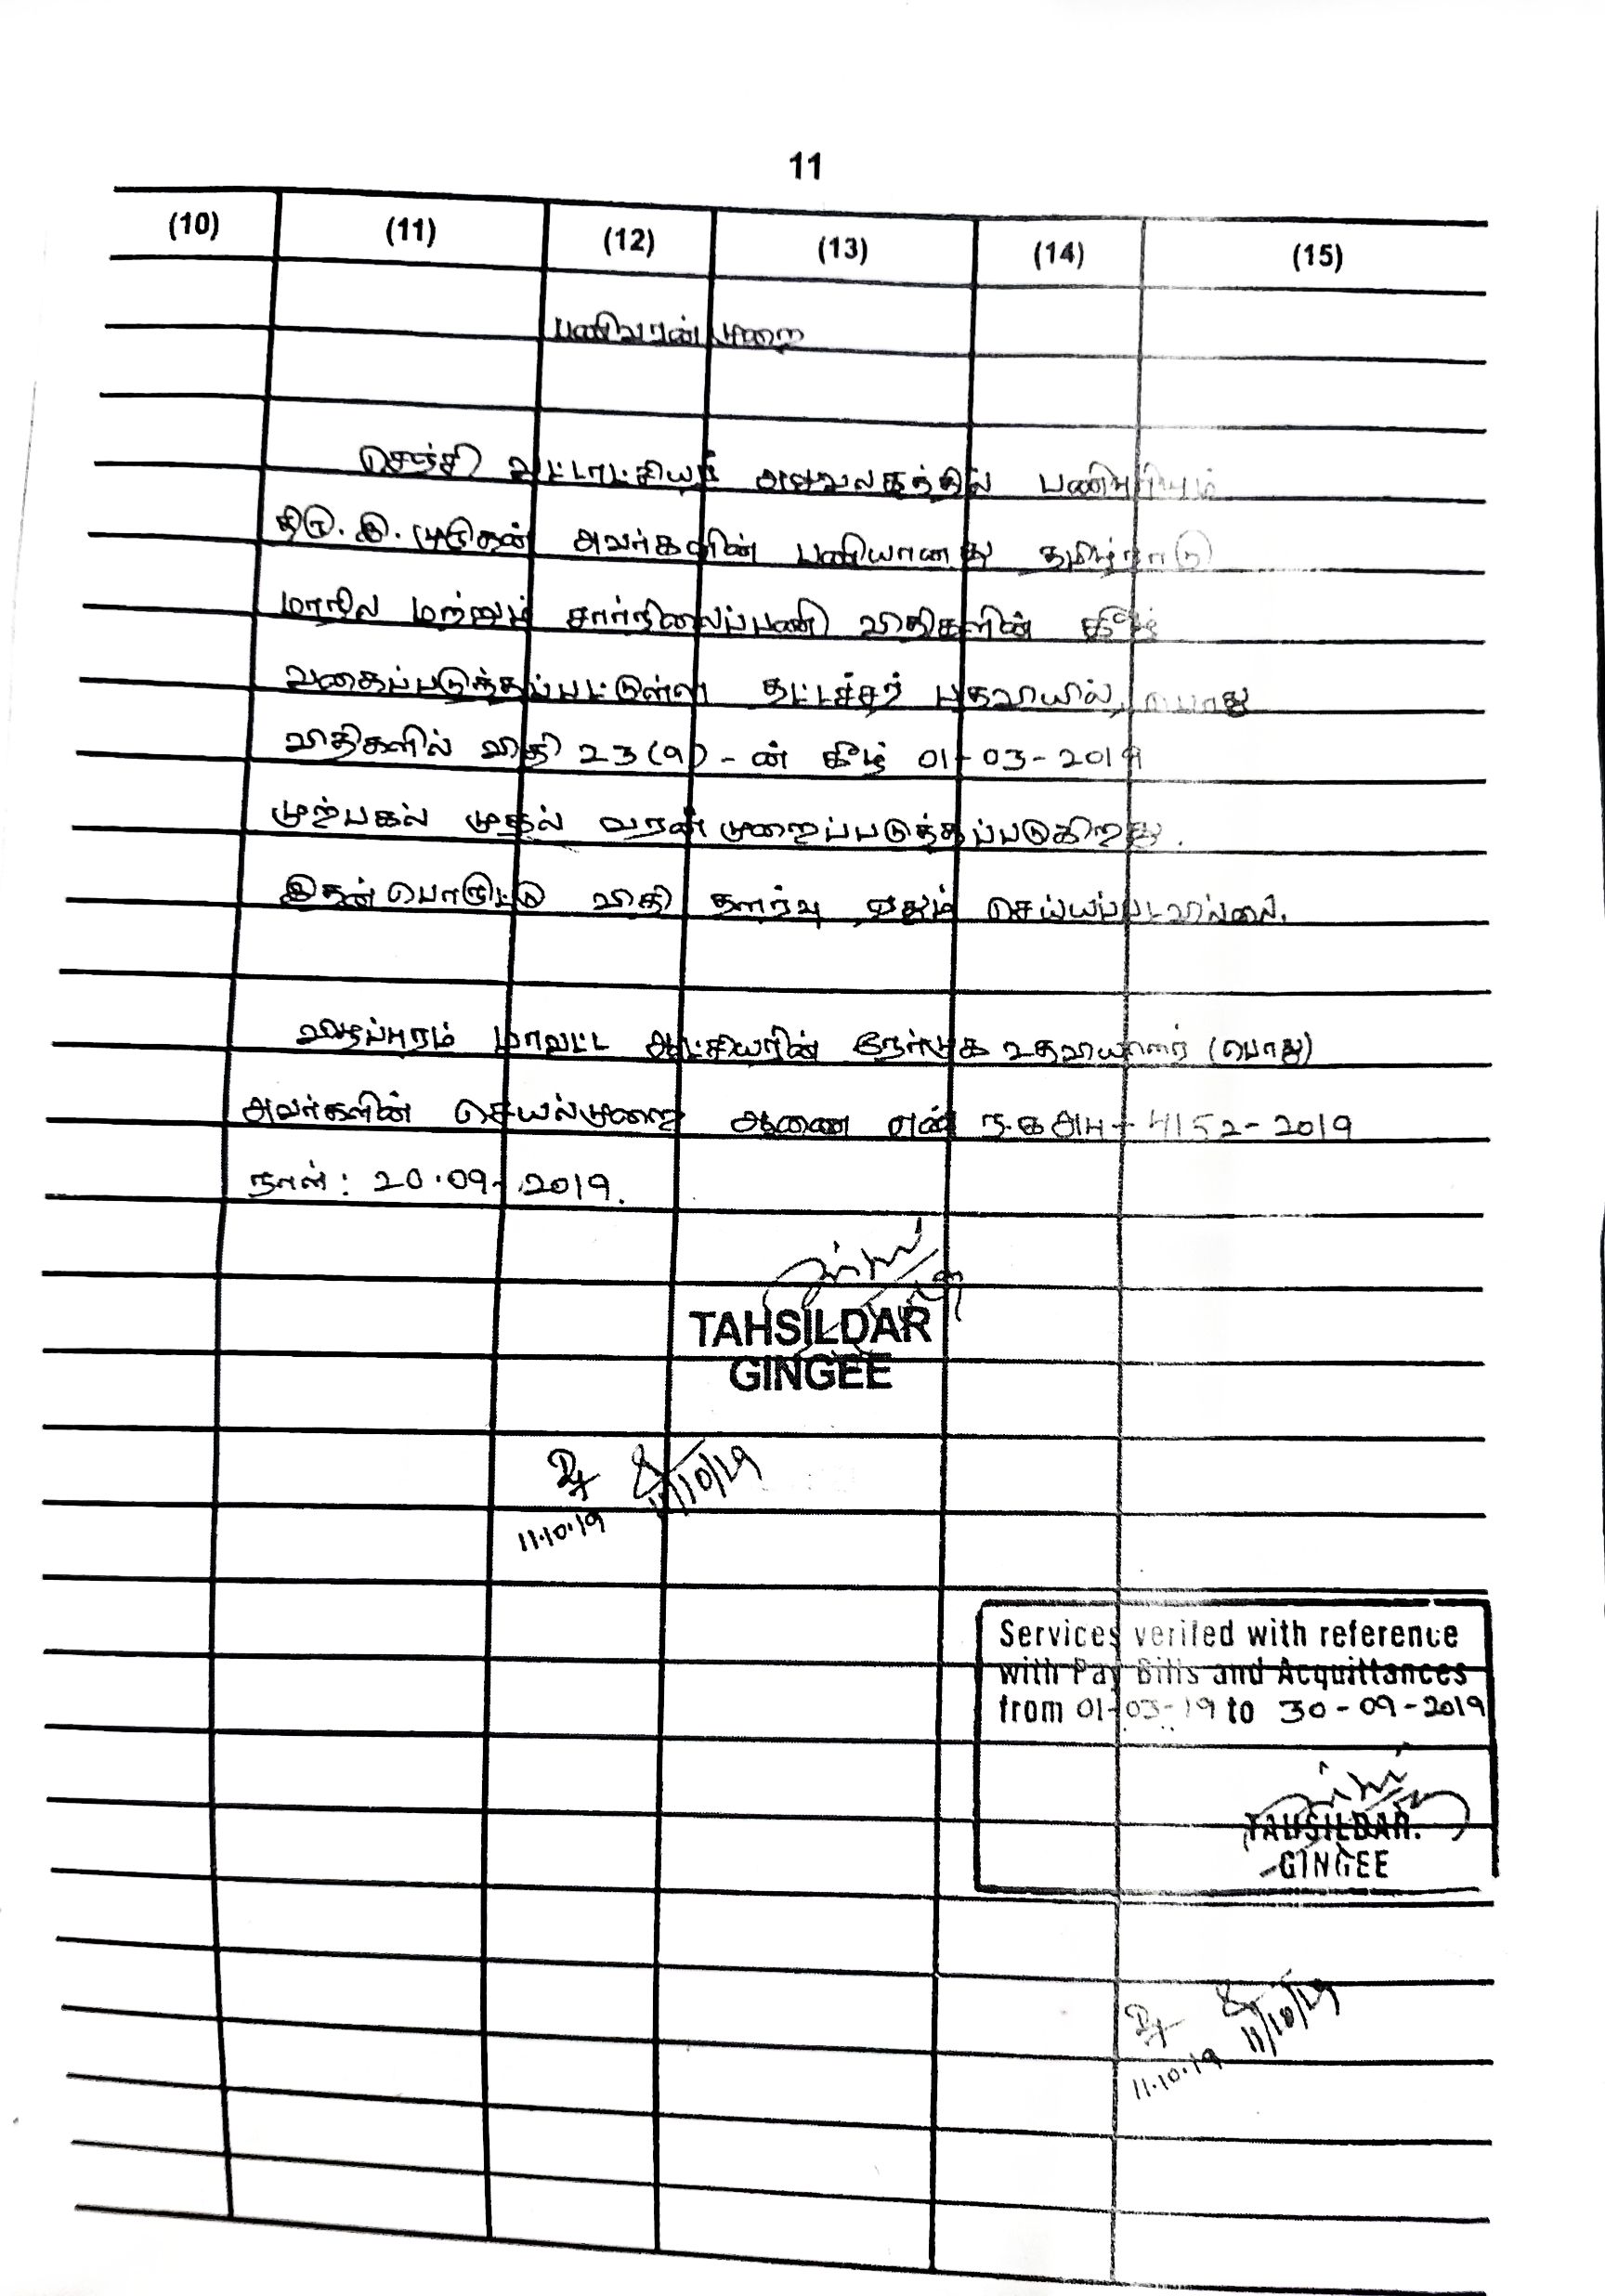 11
(10) (11) (12) (13) (14) (15)
பணிவரன் முறை
செஞ்சி வட்டாட்சியர் அலுவலகத்தில் பணிபுரியும்
திரு. இ. முருகன் அவர்களின் பணியானது தமிழ்நாடு
மாநில மற்றும் சார்நிலைப்பணி விதிகளின் கீழ்
வகைப்படுத்தப்பட்டுள்ள தட்டச்சர் பதவியில், பொது
விதிகளில் விதி 23(a) - ன் கீழ் 01-03-2019
முற்பகல் முதல் வரன் முறைப்படுத்தப்படுகிறது.
இதன் பொருட்டு விதி தளர்வு ஏதும் செய்யப்படவில்லை.
விழுப்புரம் மாவட்ட ஆட்சியரின் நேர்முக உதவியாளர் (பொது)
அவர்களின் செயல்முறை ஆணை எண் ந.க அ4-4152-2019
நாள்: 20.09-2019.
TAHSILDAR
GINGEE
11/10/19
11.10.19
Services verifed with reference
with Pay Bills and Acquittances
from 01-03-19 to 30-09-2019
TAHSILDAR.
GINGEE
11/10/19
11.10.19